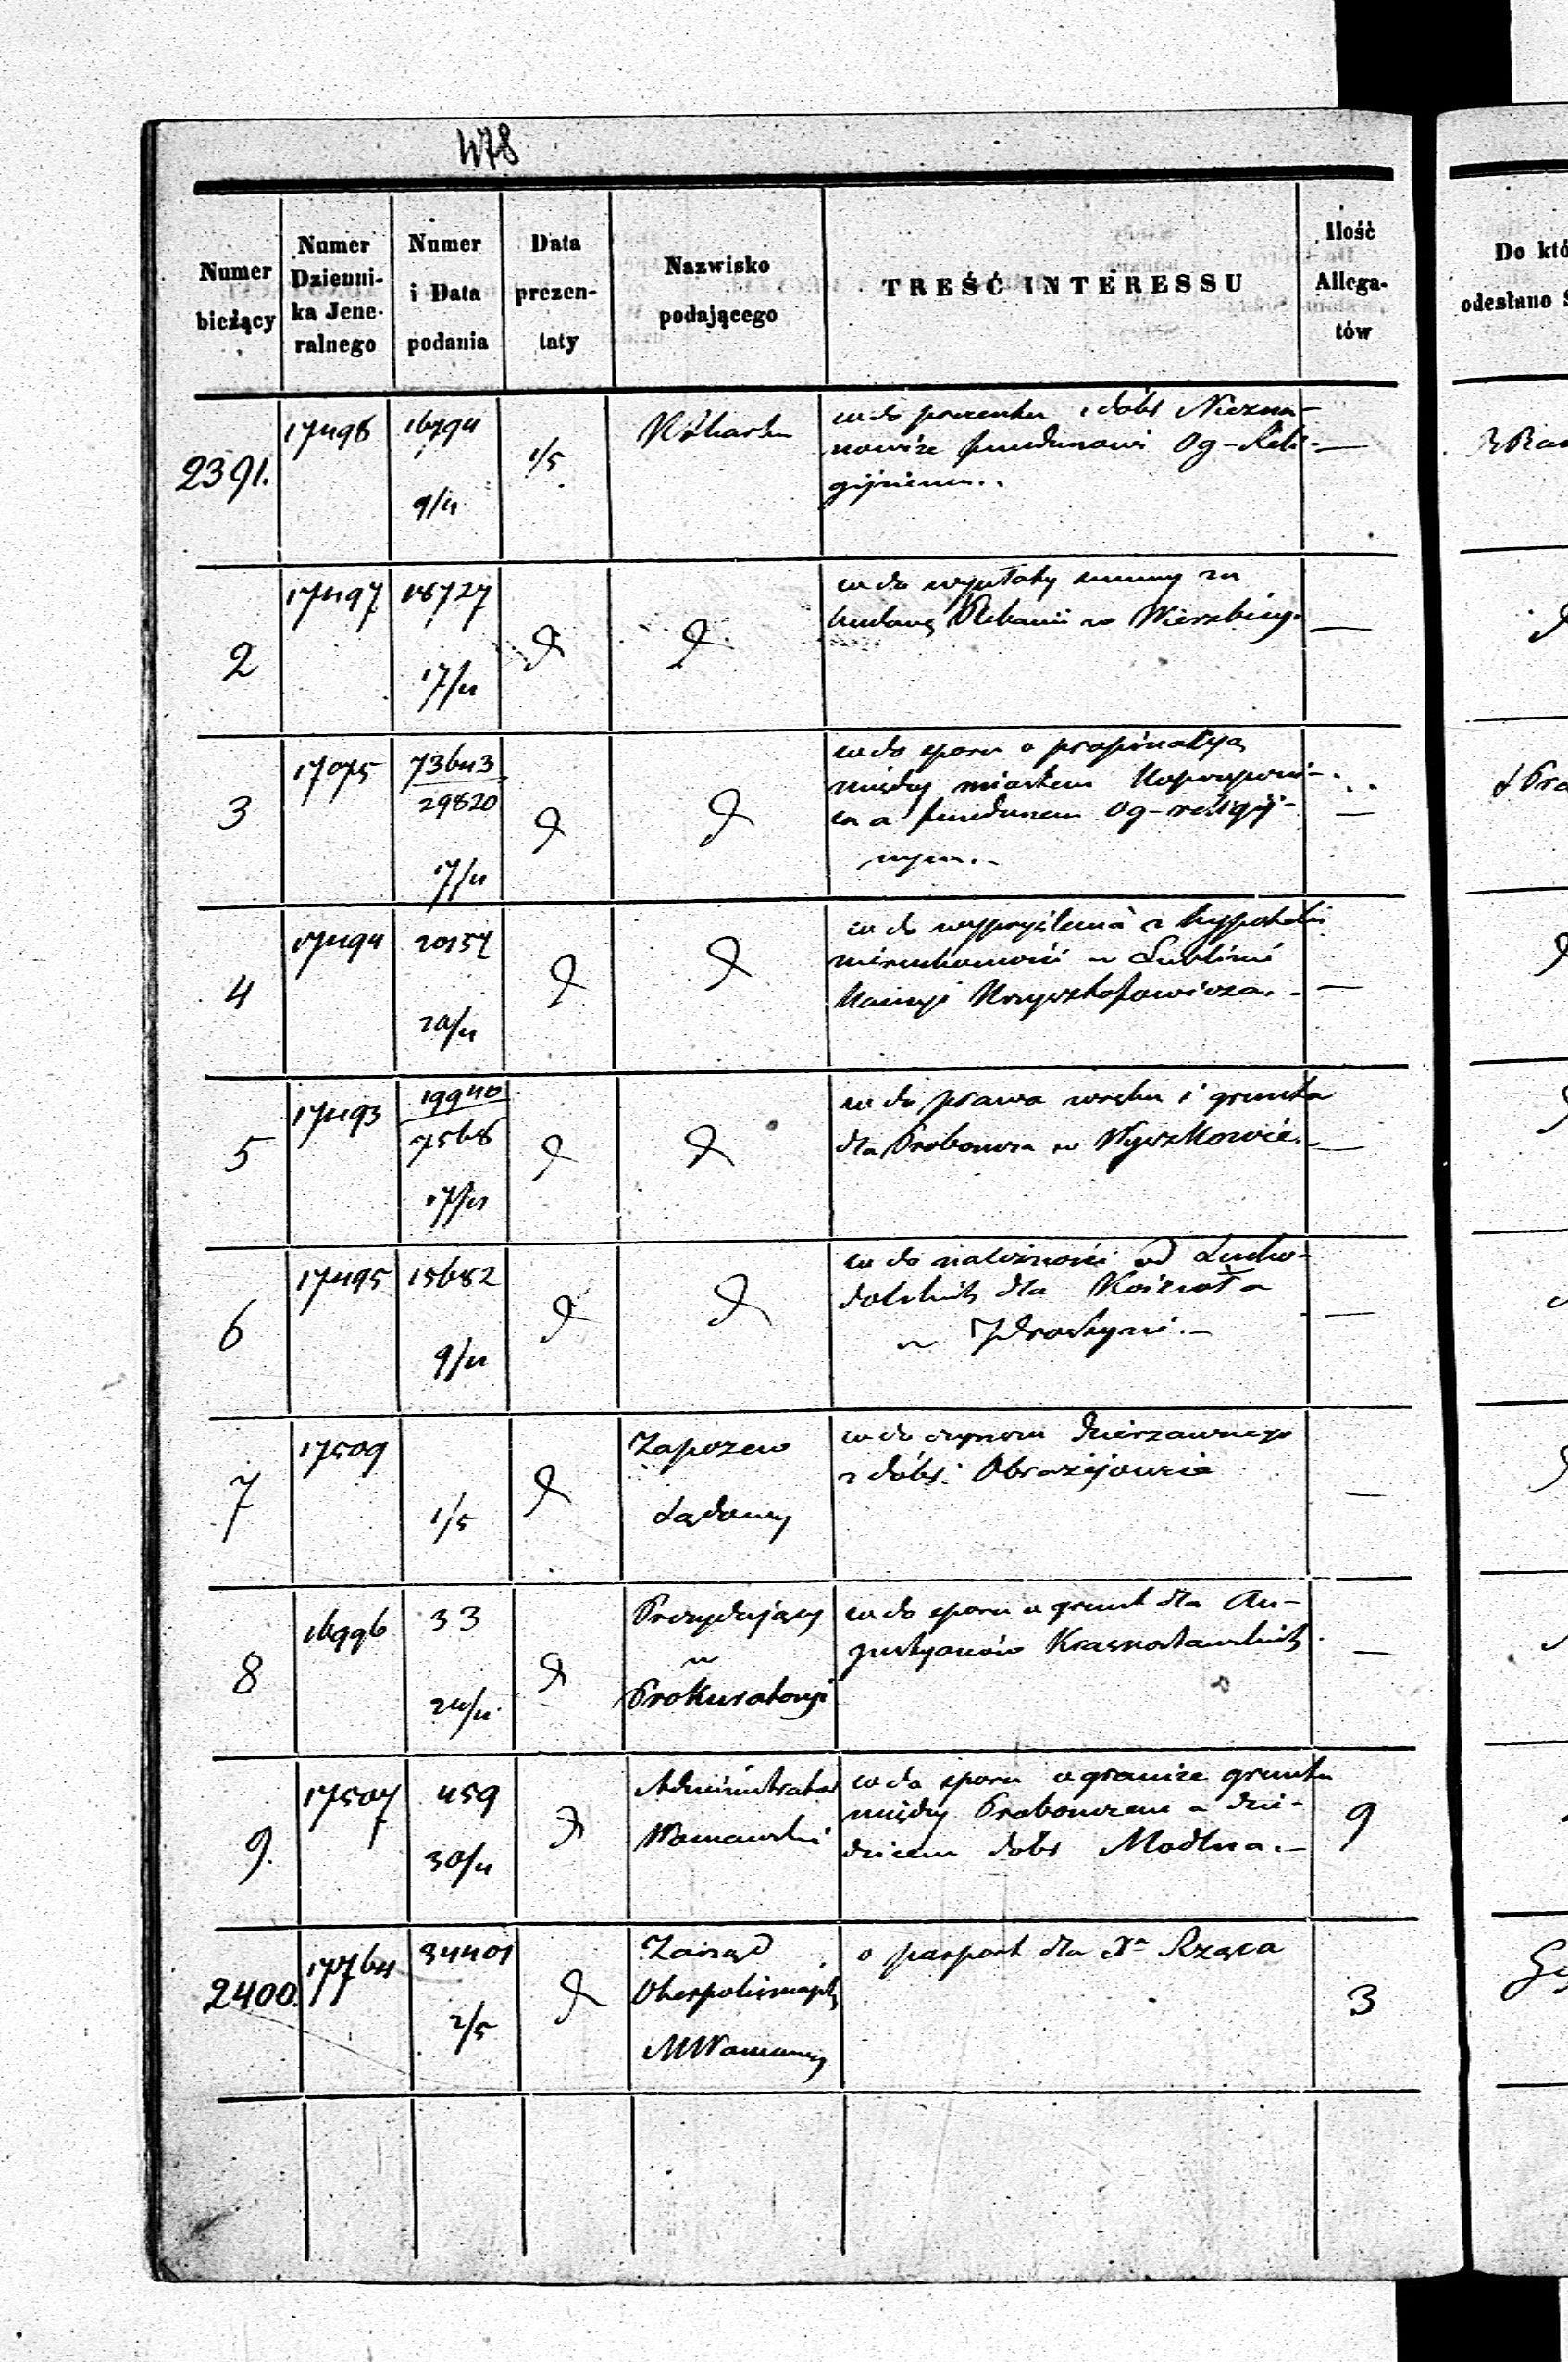 478
Numer bieżący
Numer Dzienni- ka Jene- ralnego
Numer i Data podania
Data prezen- taty
Nazwisko podającego
TREŚĆ INTERESSU
Ilość Allega- tów
Do któ
odesłano S
2391.
17498
16794
9/4
1/5
co do procentu z dóbr Niezna-
nowice funduszowi Og-Reli-
gijnemu. —
2
17497
18727
17/4
co do wypłaty summy za
budowę Plebanii w Wierzbicy.
—
3
17075
73643
29820
17/4
co do sporu o propinacyą
między miastem
a funduszem Og-religij-
nym. —
4
17494
20157
20/4
co do z hypoteki
nieruchomości w Lublinie
Krzysztofowicza. —
5
17493
19940
7568
17/4
co do prawa wrębu i gruntu
dla Proboszcza w Wyszkowie. —
6
17495
15682
9/4
co do należności od
dla Kościoła
w —
7
17509
1/5
Zapozew
Sądowy
co do czynszu dzierżawnego
z dóbr
—
8
16996
33
24/4
Prezydujący
w
Prokuratoryi
co do sporu o grunt dla Au-
gustyanów Krasnostawskich
—
9.
17507
459
30/4
Administrator
co do sporu o granice gruntu
między Proboszczem a dzie-
dzicem dóbr Modlna. —
9
2400.
17764
34401
2/5
Zarząd
Oberpolicmajstra
MWarszawy
o pasport dla Xa Rząca
3